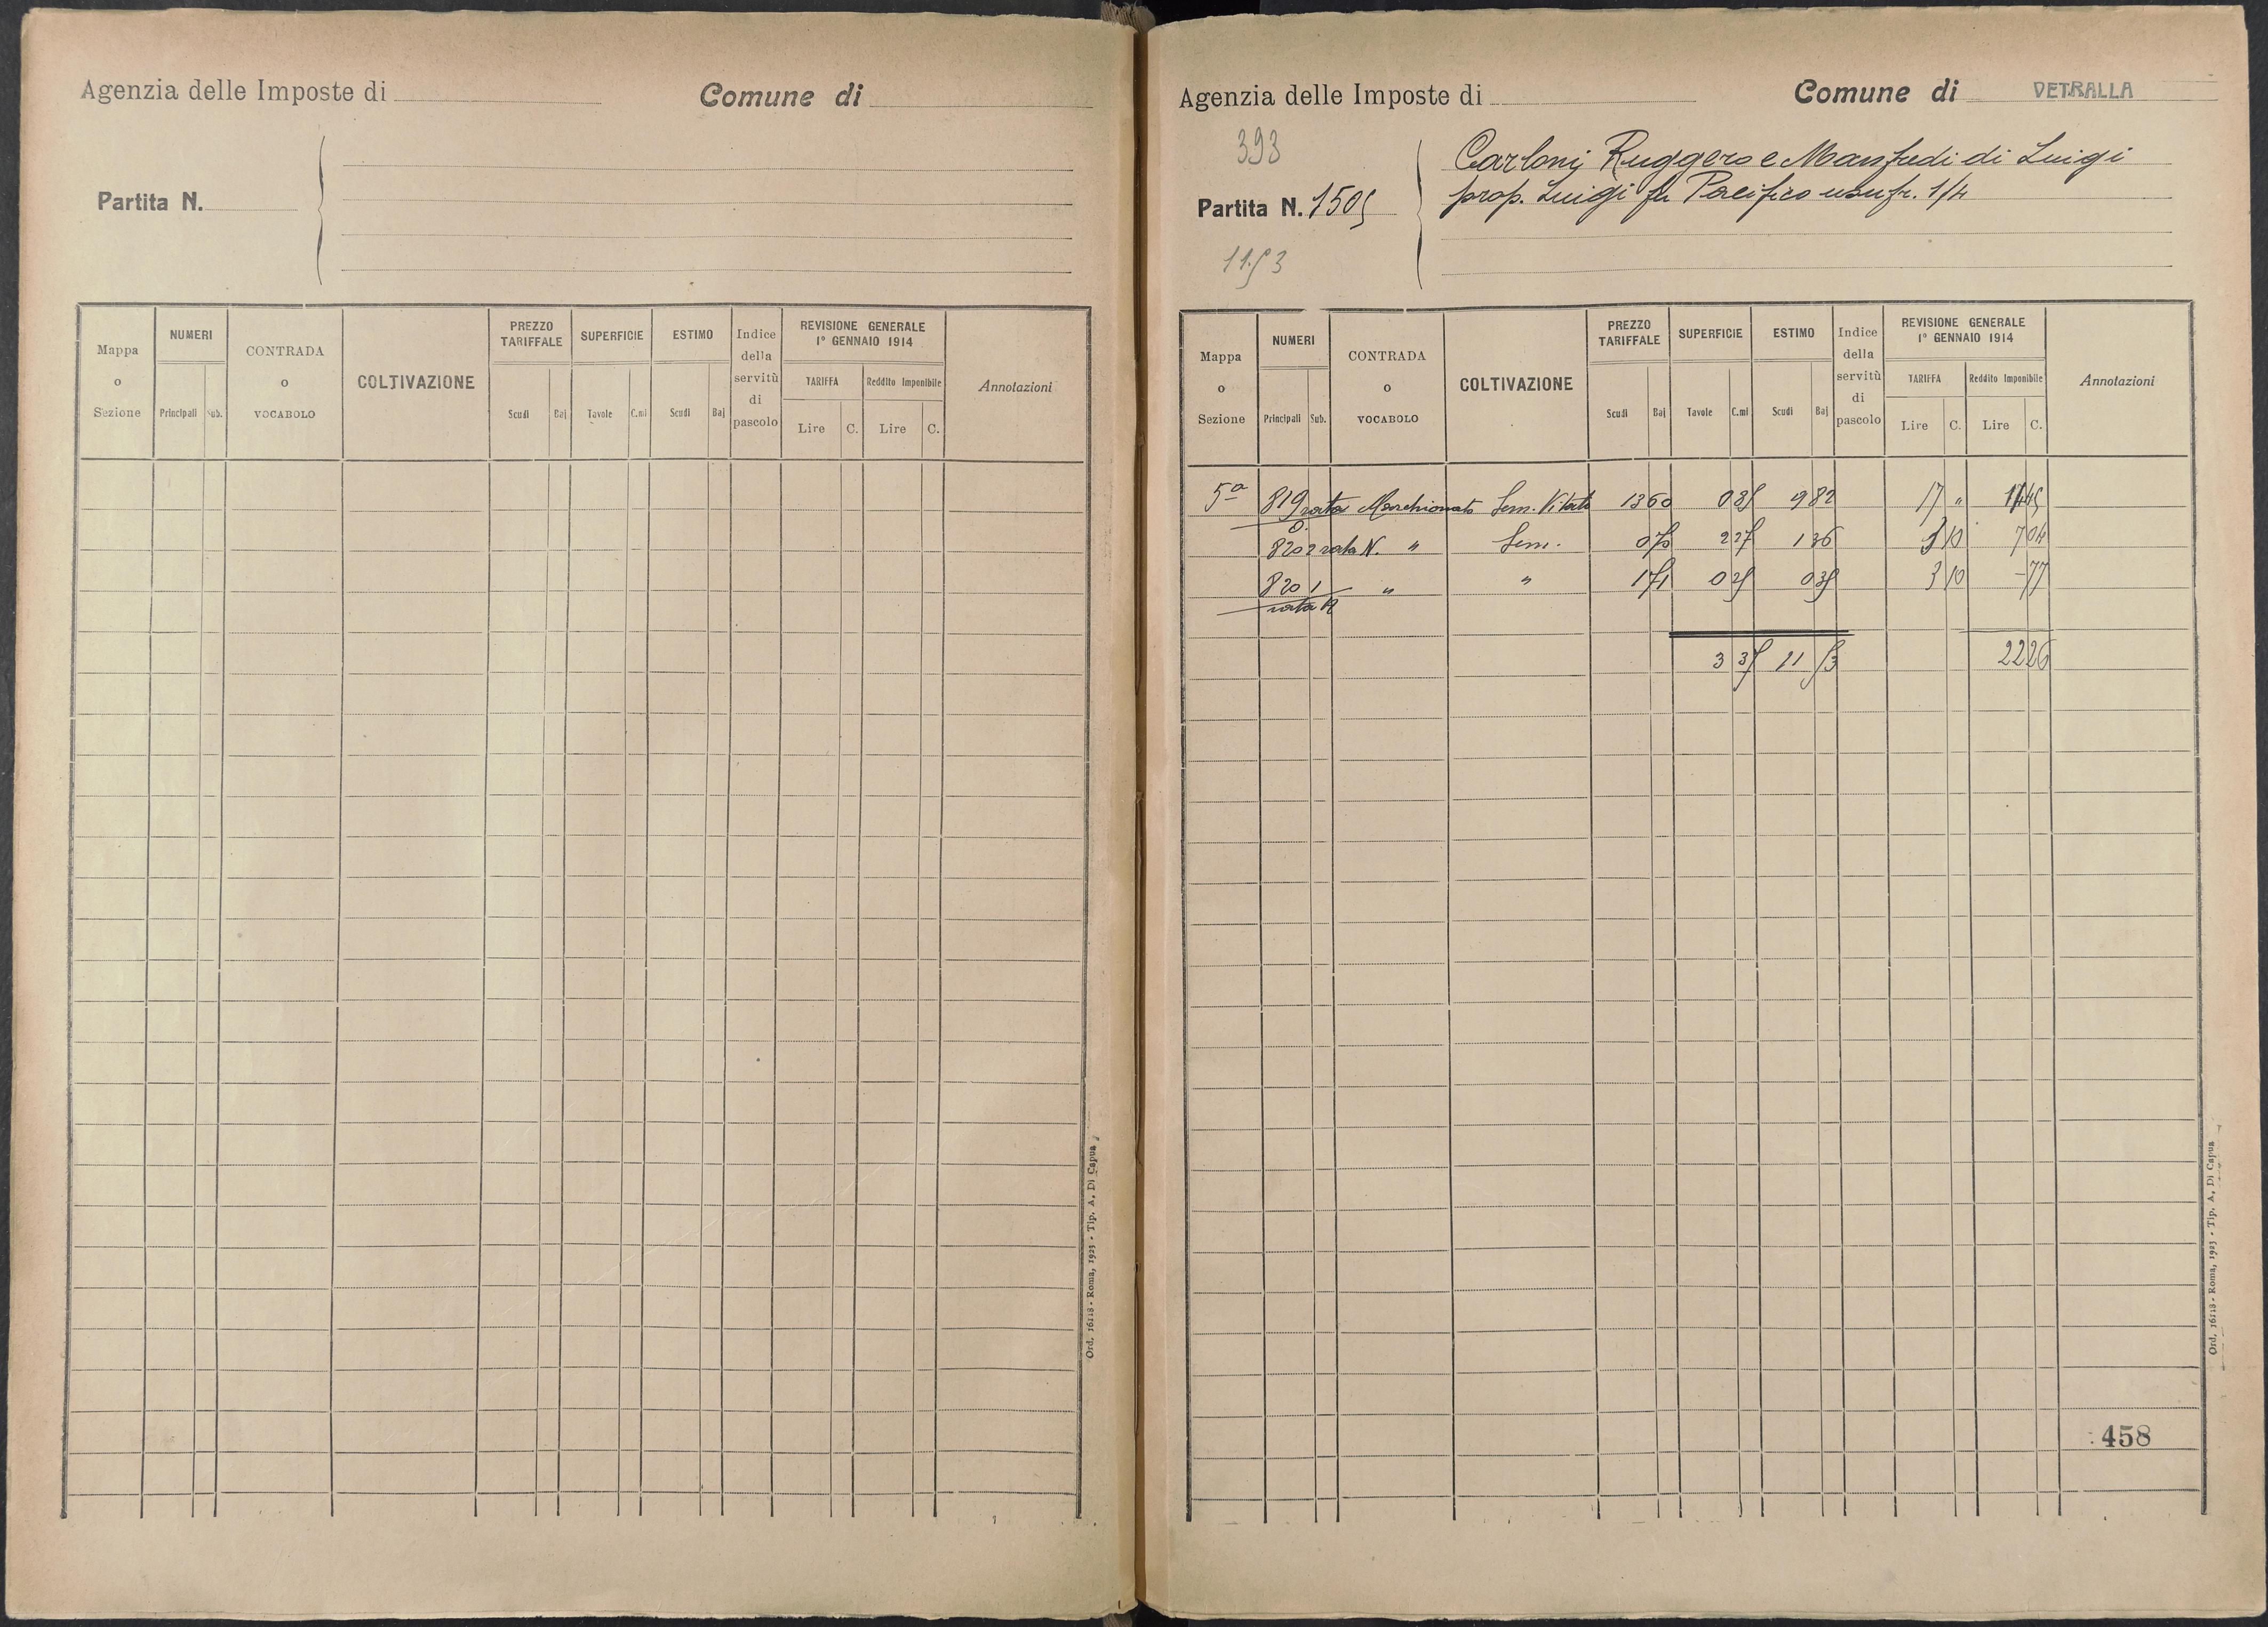 Agenzia delle Imposte di
Comune di
Partita N.
Mappa o Sezione
NUMERI
Principali Sub.
CONTRADA o VOCABOLO
COLTIVAZIONE
PREZZO TARIFFALE
Scudi Baj
SUPERFICIE
Tavole C.mi
ESTIMO
Scudi Baj
Indice della servitù di pascolo
REVISIONE GENERALE
1° GENNAIO 1914
TARIFFA
Lire C.
Reddito Imponibile
Lire C.
Annotazioni
Ord. 16118 - Roma, 1923 - Tip. A. Di Capua
Agenzia delle Imposte di
Comune di VETRALLA
393
Partita N. 1505
1153
Carloni Ruggero e Manfredi di Luigi
prop. Luigi fu Pacifico usufr. 1/4
Mappa o Sezione
NUMERI
Principali Sub.
CONTRADA o VOCABOLO
COLTIVAZIONE
PREZZO TARIFFALE
Scudi Baj
SUPERFICIE
Tavole C.mi
ESTIMO
Scudi Baj
Indice della servitù di pascolo
REVISIONE GENERALE
1° GENNAIO 1914
TARIFFA
Lire C.
Reddito Imponibile
Lire C.
Annotazioni
5a 819 rata Marchionato Sem. Vitato 13 60 0 85 9 82 17 " 14 45
820 2 rata N. " Sem. 0 70 2 27 1 36 3 10 7 04
820 1 " " 1 51 0 25 0 35 3 10 - 77
rata R
3 35 11 53 22 26
458
Ord. 16118 - Roma, 1923 - Tip. A. Di Capua